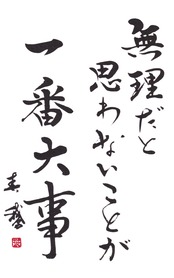 無理だと
思わないことが
一番大事